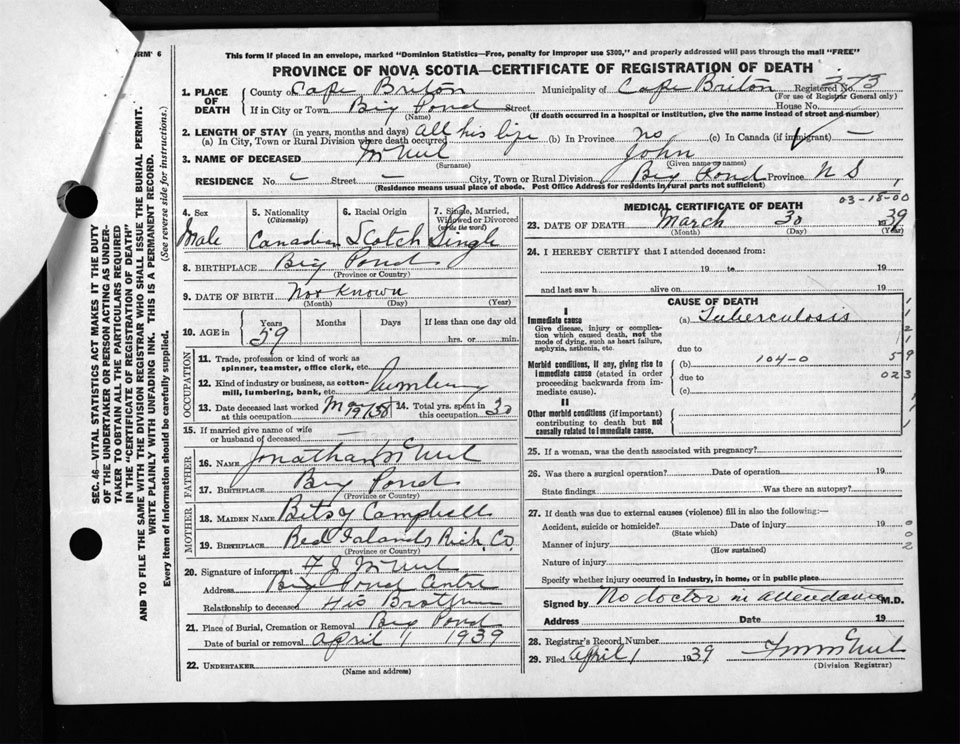 ORM 6
This form if placed in an envelope, marked "Dominion Statistics—Free, penalty for improper use $300," and properly addressed will pass through the mail "FREE"
PROVINCE OF NOVA SCOTIA—CERTIFICATE OF REGISTRATION OF DEATH
1. PLACE OF DEATH
County of Cape Briton Municipality of Cape Briton Registered No. 373
(For use of Registrar General only)
If in City or Town Big Pond Street House No.
(Name) (If death occurred in a hospital or institution, give the name instead of street and number)
2. LENGTH OF STAY (in years, months and days)
(a) In City, Town or Rural Division where death occurred all his life (b) In Province no (c) In Canada (if immigrant) —
3. NAME OF DECEASED McNeil John
(Surname) (Given name or names)
RESIDENCE No. – Street – City, Town or Rural Division Big Pond Province N S
(Residence means usual place of abode. Post Office Address for residents in rural parts not sufficient)
4. Sex
Male
5. Nationality (Citizenship)
Canadian
6. Racial Origin
Scotch
7. Single, Married, Widowed or Divorced (write the word)
Single
8. BIRTHPLACE Big Pond
(Province or Country)
9. DATE OF BIRTH Not Known
(Month) (Day) (Year)
10. AGE in Years Months Days If less than one day old
59 hrs. or min.
OCCUPATION
11. Trade, profession or kind of work as spinner, teamster, office clerk, etc.
12. Kind of industry or business, as cotton-mill, lumbering, bank, etc. Lumbering
13. Date deceased last worked at this occupation 14. Total yrs. spent in this occupation 30
15. If married give name of wife or husband of deceased —
FATHER
16. NAME Jonathan McNeil
17. BIRTHPLACE Big Pond
(Province or Country)
MOTHER
18. MAIDEN NAME Betsy Campbell
19. BIRTHPLACE Red Islands Rich. Co.
(Province or Country)
20. Signature of informant McNeil
Address Big Pond Centre
Relationship to deceased His Brother
21. Place of Burial, Cremation or Removal Big Pond
Date of burial or removal April 1 1939
22. UNDERTAKER
(Name and address)
03-18-00
1
MEDICAL CERTIFICATE OF DEATH
23. DATE OF DEATH March 30 1939
(Month) (Day) (Year)
24. I HEREBY CERTIFY that I attended deceased from:
19 to 19
and last saw h alive on 19
CAUSE OF DEATH
I
Immediate cause
Give disease, injury or complication which caused death, not the mode of dying, such as heart failure, asphyxia, asthenia, etc.
(a) Tuberculosis
due to
Morbid conditions, if any, giving rise to immediate cause (stated in order proceeding backwards from immediate cause).
(b) 104-0
due to
(c)
II
Other morbid conditions (if important) contributing to death but not causally related to immediate cause.
1
2
1
59
023
25. If a woman, was the death associated with pregnancy?
26. Was there a surgical operation? Date of operation 19
State findings Was there an autopsy?
27. If death was due to external causes (violence) fill in also the following:—
Accident, suicide or homicide? Date of injury 19
(State which)
Manner of injury
(How sustained)
Nature of injury
Specify whether injury occurred in industry, in home, or in public place
0
0
2
Signed by No doctor in attendance M.D.
Address Date 19
28. Registrar's Record Number
29. Filed April 1 1939
(Division Registrar)
SEC. 46—VITAL STATISTICS ACT MAKES IT THE DUTY
OF THE UNDERTAKER OR PERSON ACTING AS UNDER-
TAKER TO OBTAIN ALL THE PARTICULARS REQUIRED
IN THE "CERTIFICATE OF REGISTRATION OF DEATH"
AND TO FILE THE SAME WITH THE DIVISION REGISTRAR WHO SHALL ISSUE THE BURIAL PERMIT.
WRITE PLAINLY WITH UNFADING INK. THIS IS A PERMANENT RECORD.
Every item of information should be carefully supplied. (See reverse side for instructions.)